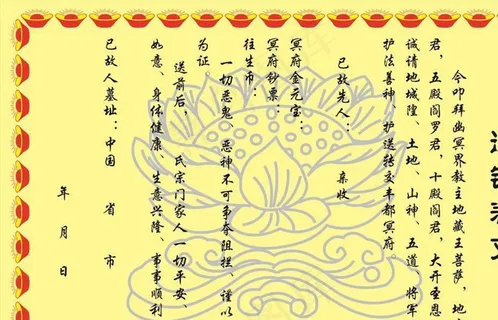 今叩拜幽冥界教主地藏王菩萨，地
君，五殿阎罗君，十殿阎君，大开圣恩
诚请地城隍、土地、山神、五道、将军
护法善神，护送转交丰都冥府。
已故先人：　　亲收
冥府金元宝：
冥府钞票：
往生币：
一切恶鬼、恶神不可争夺阻拦，谨以
为证。
送前后，　氏宗门家人一切平安、
如意、身体健康、生意兴隆、事事顺利
已故人墓址：中国　省　市
年　月　日